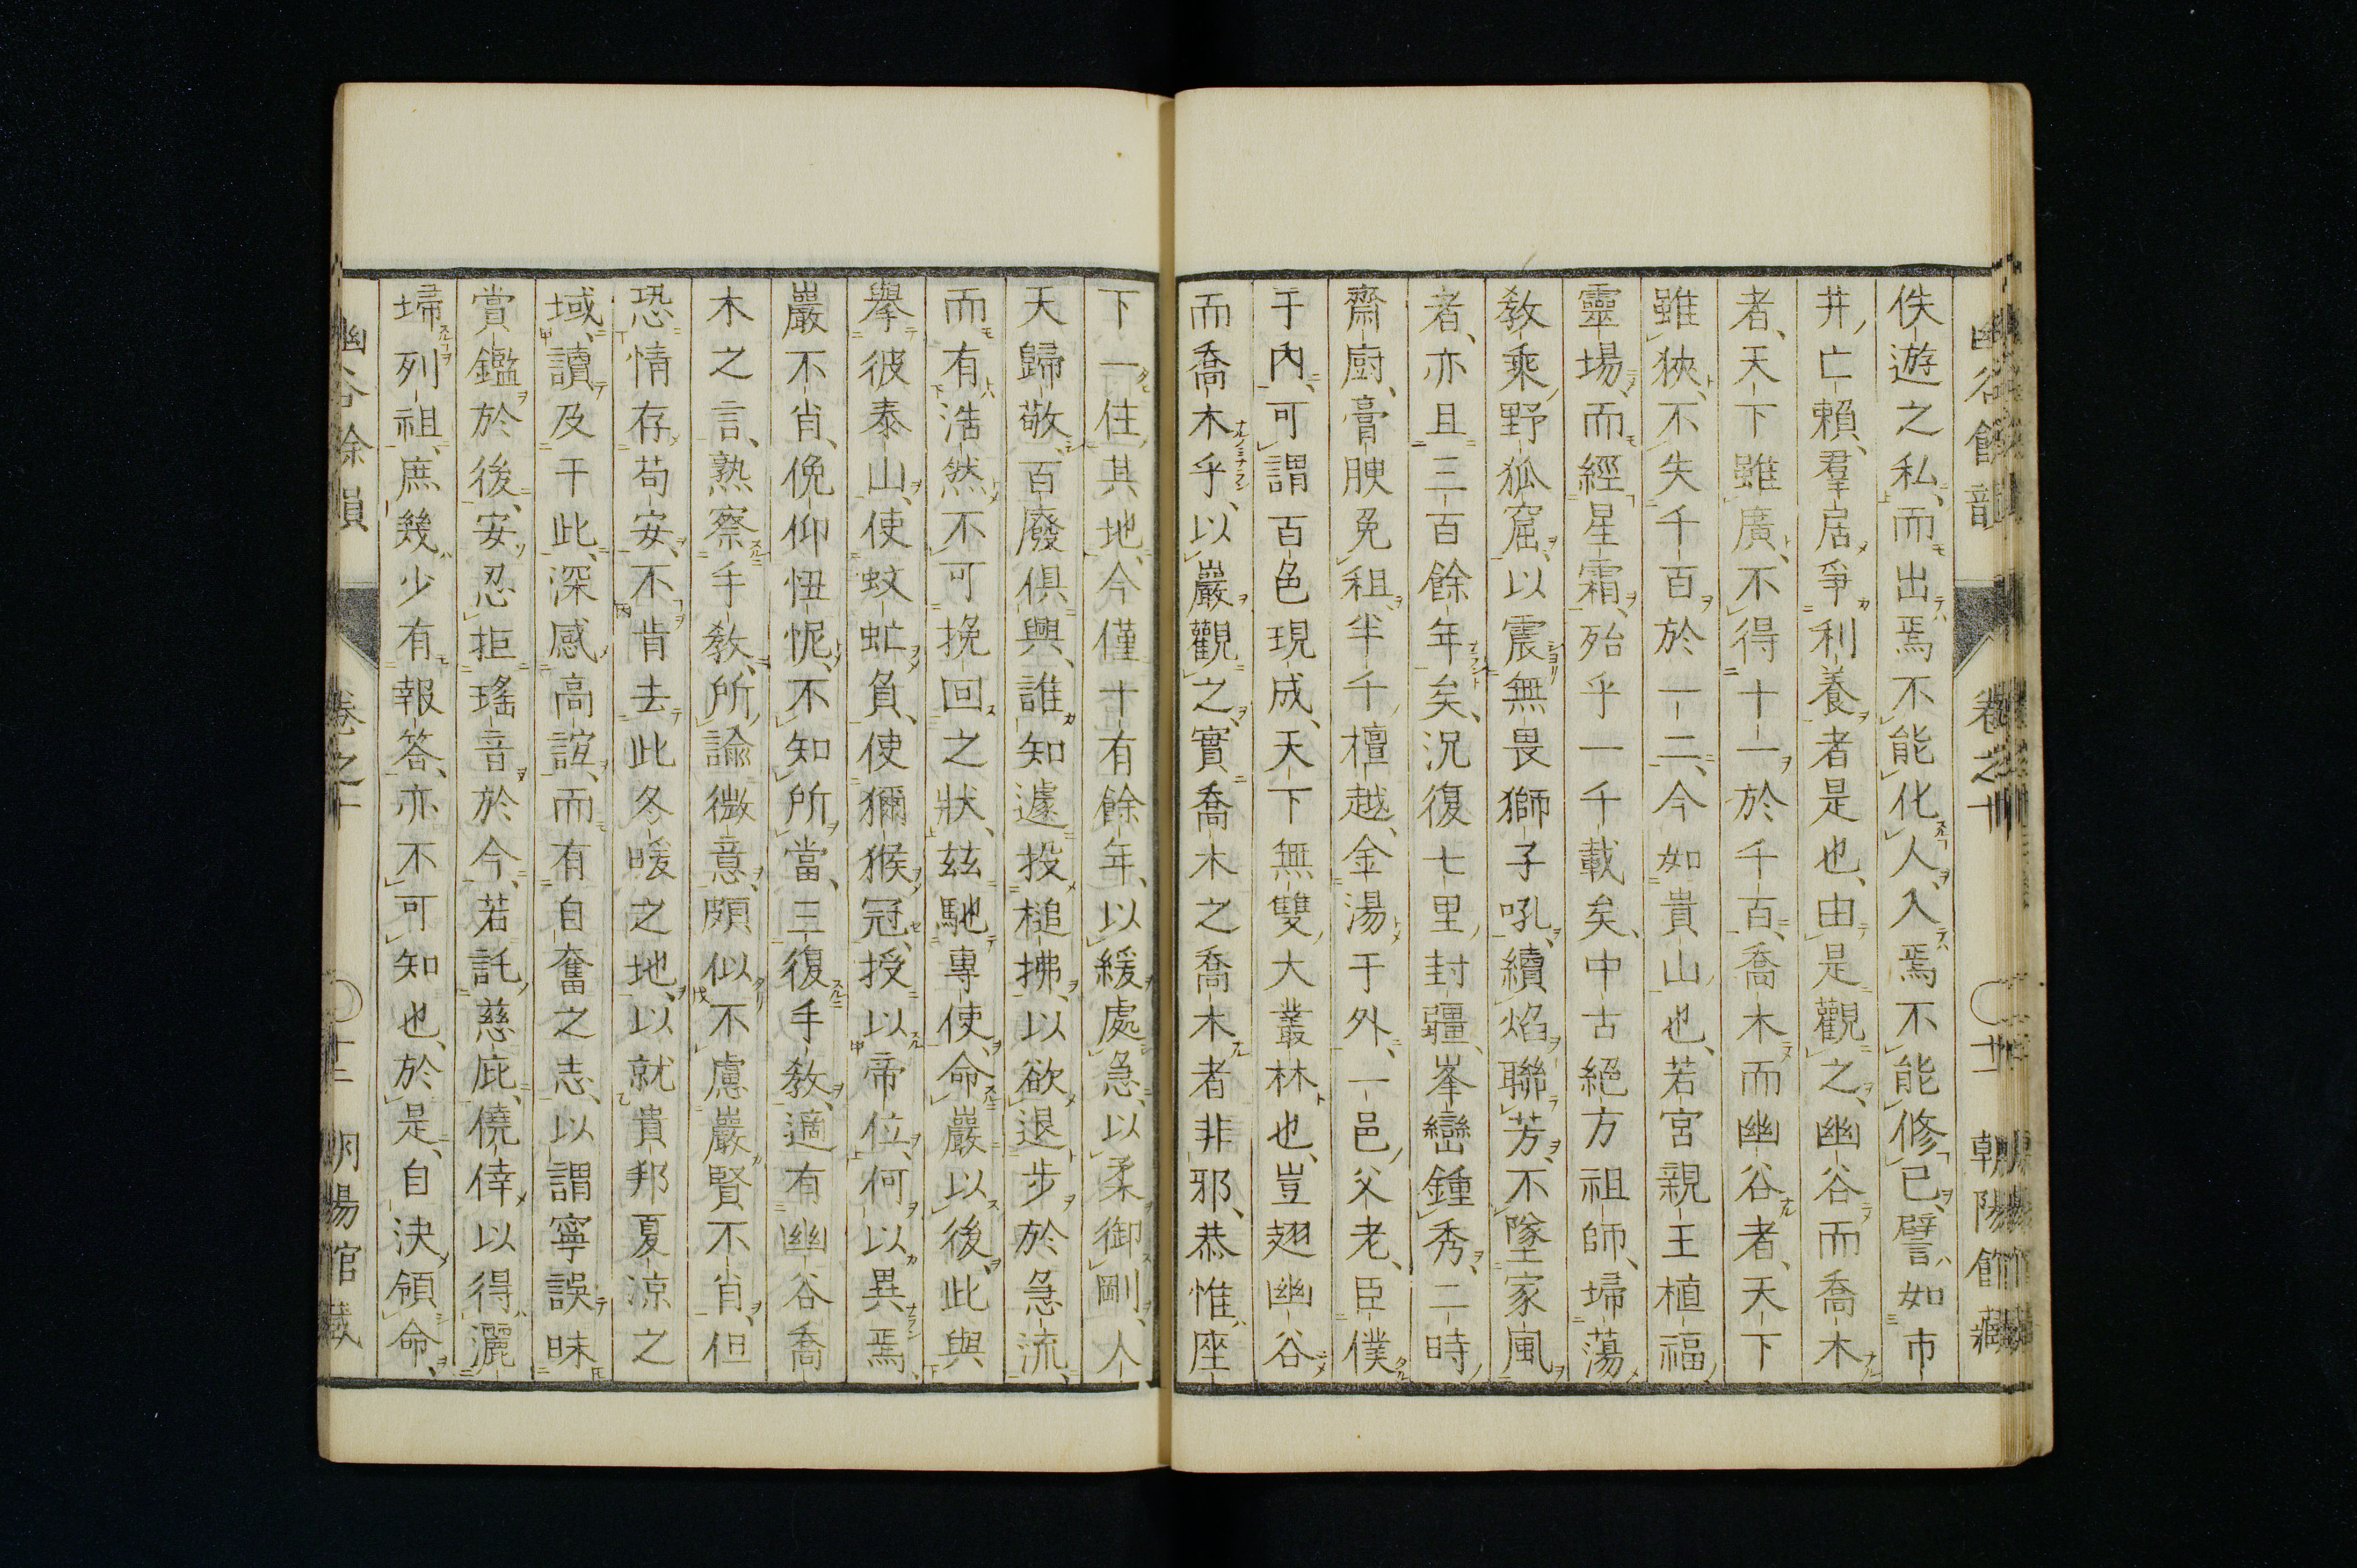 幽谷餘韻 卷之十 〇十一 朝陽館藏
佚遊之私、而出焉不能化人、入焉不能修己、譬如市
井亡賴、羣居爭利養者是也、由是觀之、幽谷而喬木
者、天下雖廣、不得十一於千百、喬木而幽谷者、天下
雖狹、不失千百於一二、今如貴山也、若宮親王植福
靈場、而經星霜、殆乎一千載矣、中古絕方祖師、埽蕩
敎乘野狐窟、以震無畏獅子吼、續焰聯芳、不墜家風
者、亦且三百餘年矣、況復七里封疆、峯巒鍾秀、二時
齋廚、膏腴免租、半千檀越、金湯于外、一邑父老、臣僕
于內、可謂百色現成、天下無雙大叢林也、豈翅幽谷
而喬木乎、以嚴觀之、實喬木之喬木者非邪、恭惟座
下一住其地、今僅十有餘年、以緩處急、以柔御剛、人
天歸敬、百廢俱興、誰知遽投槌拂、以欲退步於急流、
而有浩然不可挽回之狀、茲馳專使、命嚴以後、此與
擧彼泰山、使蚊虻負、使獼猴冠、授以帝位、何以異焉、
嚴不肖、俛仰忸怩、不知所當、三復手敎、適有幽谷喬
木之言、熟察手敎、所諭微意、頗似不慮嚴賢不肖、但
恐情存苟安、不肯去此冬暖之地、以就貴邦夏涼之
域、讀及于此、深感高誼、而有自奮之志、以謂寧誤昧
賞鑑於後、安忍拒瑤音於今、若託慈庇、僥倖以得灑
埽列祖、庶幾少有報答、亦不可知也、於是、自決領命、
幽谷餘韻 卷之十 〇十二 朝陽館藏